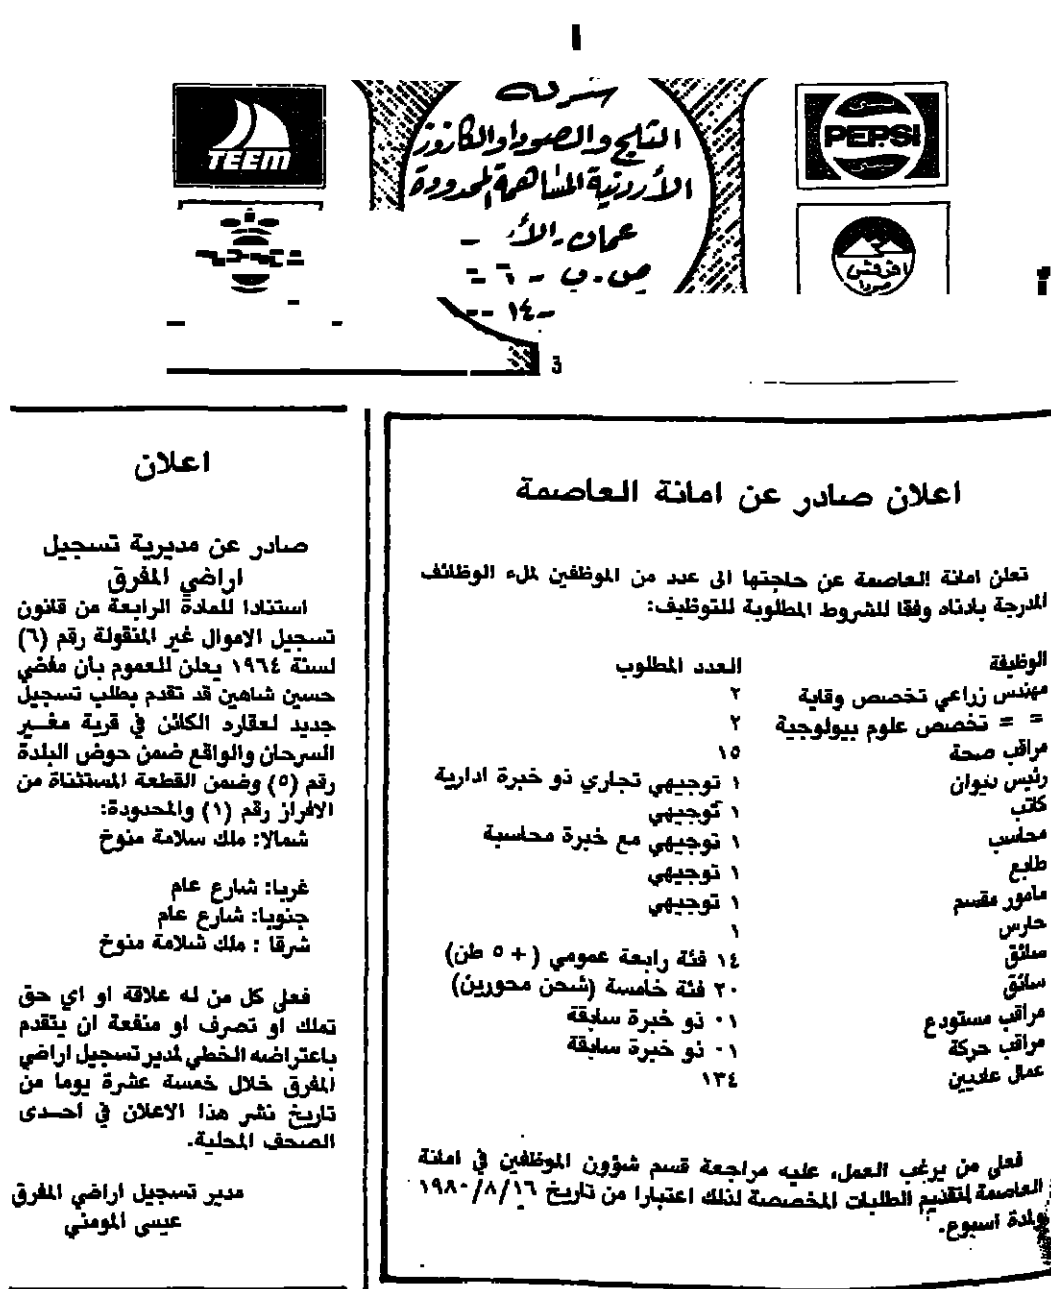 TEEM
شركة
الثلج والصودا والكازوز
الأردنية المساهمة المحدودة
عمان
ص.ب - ٦
١٤
PEPSI
صودا
اعلان صادر عن امانة العاصمة
تعلن امانة العاصمة عن حاجتها الى عدد من الموظفين لملء الوظائف
المدرجة بادناه وفقا للشروط المطلوبة للتوظيف:
الوظيفة العدد المطلوب
مهندس زراعي تخصص وقاية ٢
= = تخصص علوم بيولوجية ٢
مراقب صحة ١٥
رئيس ديوان ١ توجيهي تجاري ذو خبرة ادارية
كاتب ١ توجيهي
محاسب ١ توجيهي مع خبرة محاسبة
طابع ١ توجيهي
مامور مقسم ١ توجيهي
حارس ١
سائق ١٤ فئة رابعة عمومي (+ ٥ طن)
سائق ٢٠ فئة خامسة (شحن محورين)
مراقب مستودع ٠١ ذو خبرة سابقة
مراقب حركة ٠١ ذو خبرة سابقة
عمال عاديين ١٣٤
فعلى من يرغب العمل، عليه مراجعة قسم شؤون الموظفين في امانة
العاصمة لتقديم الطلبات المخصصة لذلك اعتبارا من تاريخ ١٩٨٠/٨/١٦
ولمدة اسبوع.
اعلان
صادر عن مديرية تسجيل
اراضي المفرق
استنادا للمادة الرابعة من قانون
تسجيل الاموال غير المنقولة رقم (٦)
لسنة ١٩٦٤ يعلن للعموم بأن مفضي
حسين شاهين قد تقدم بطلب تسجيل
جديد لعقاره الكائن في قرية مغـير
السرحان والواقع ضمن حوض البلدة
رقم (٥) وضمن القطعة المستثناة من
الافراز رقم (١) والمحدودة:
شمالا: ملك سلامة منوخ
غربا: شارع عام
جنوبا: شارع عام
شرقا : ملك سلامة منوخ
فعلى كل من له علاقة او اي حق
تملك او تصرف او منفعة ان يتقدم
باعتراضه الخطي لمدير تسجيل اراضي
المفرق خلال خمسة عشرة يوما من
تاريخ نشر هذا الاعلان في احـدى
الصحف المحلية.
مدير تسجيل اراضي المفرق
عيسى المومني